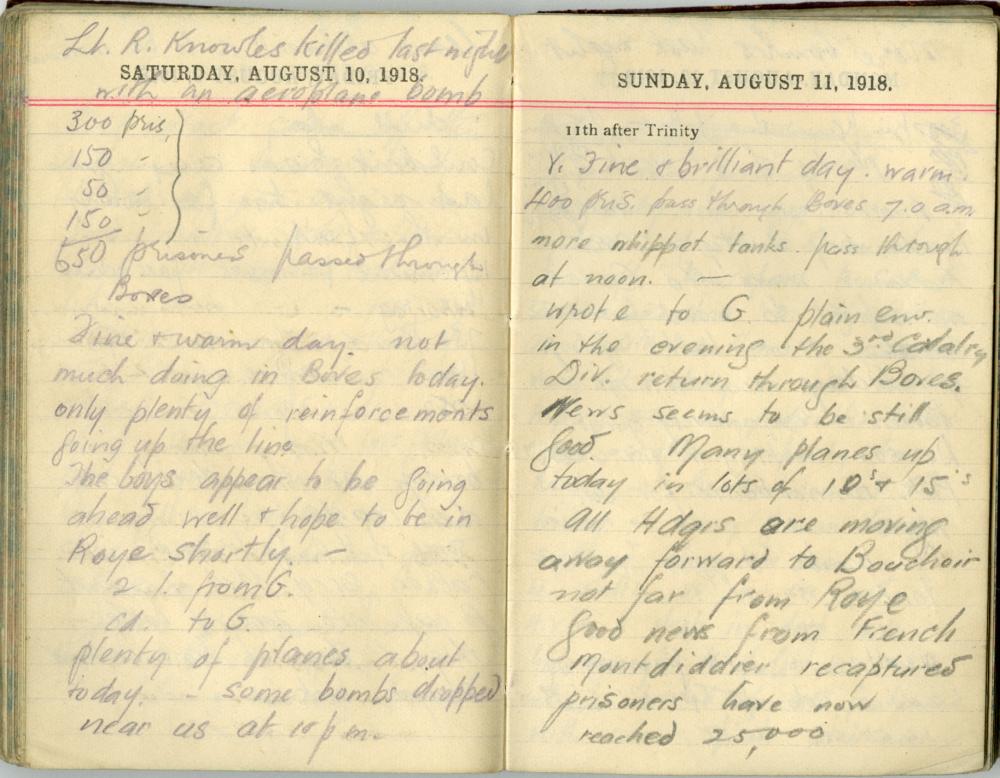 Lt. R. Knowles killed last night
SATURDAY, AUGUST 10, 1918.
with an aeroplane bomb
300 pris,
150 "
50 "
150
650 prisoners passed through
Boves
Fine & warm day. not
much doing in Boves today.
only plenty of reinforcements
going up the line
The boys appear to be going
ahead well & hope to be in
Roye shortly. —
2 l. from G.
cd. to G.
plenty of planes about
today. - some bombs dropped
near us at 10 pm.
SUNDAY, AUGUST 11, 1918.
11th after Trinity
V. Fine & brilliant day. warm.
400 pris. pass through Boves 7.0 am
more whippot tanks. pass through
at noon. —
wrote to G. plain env.
in the evening the 3rd Cavalry
Div. return through Boves.
News seems to be still
good. Many planes up
today in lots of 10s & 15's
all Hdqrs are moving
away forward to Bouchoir
not far from Roye
good news from French
Montdiddier recaptured
prisoners have now
reached 25,000